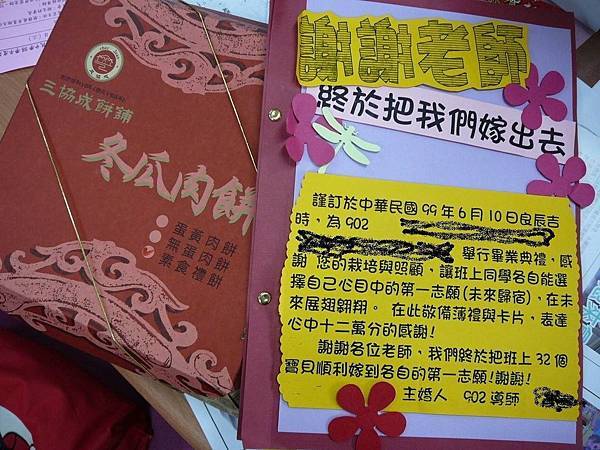 三協成餅舖
冬瓜肉餅
蛋黃肉餅
無蛋肉餅
素食禮餅
謝謝老師
終於把我們嫁出去
謹訂於中華民國99年6月10日良辰吉
時，為902
舉行畢業典禮，感
謝 您的栽培與照顧，讓班上同學各自能選
擇自己心目中的第一志願(未來歸宿)，在未
來展翅翱翔。 在此敬備薄禮與卡片，表達
心中十二萬分的感謝!
謝謝各位老師，我們終於把班上32個
寶貝順利嫁到各自的第一志願!謝謝!
主婚人 902導師